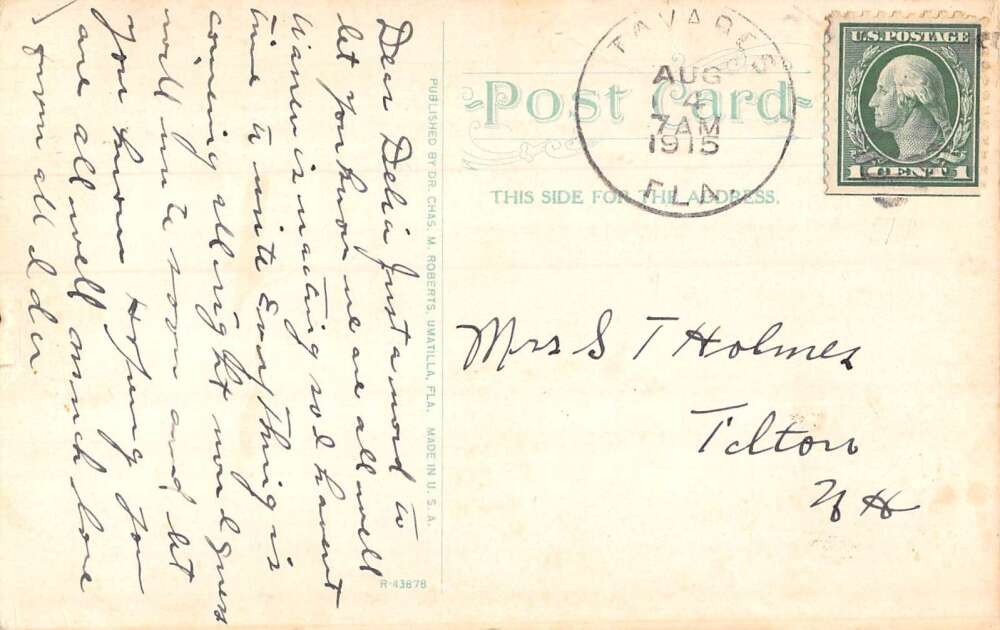 Dear Delia Just a word to
let you know we are all well
Warren is waiting so I havent
time to write Every Thing is
coming allright now I guess
will write soon and let
you know Hoping you
are all well & much love
from all Ider
PUBLISHED BY DR. CHAS. M. ROBERTS, UMATILLA, FLA. MADE IN U. S. A.
R-43878
Post Card
THIS SIDE FOR THE ADDRESS.
TAVARES
AUG
4
7 AM
1915
FLA
U.S. POSTAGE
1 CENT 1
Mrs S T Holmes
Tilton
N H